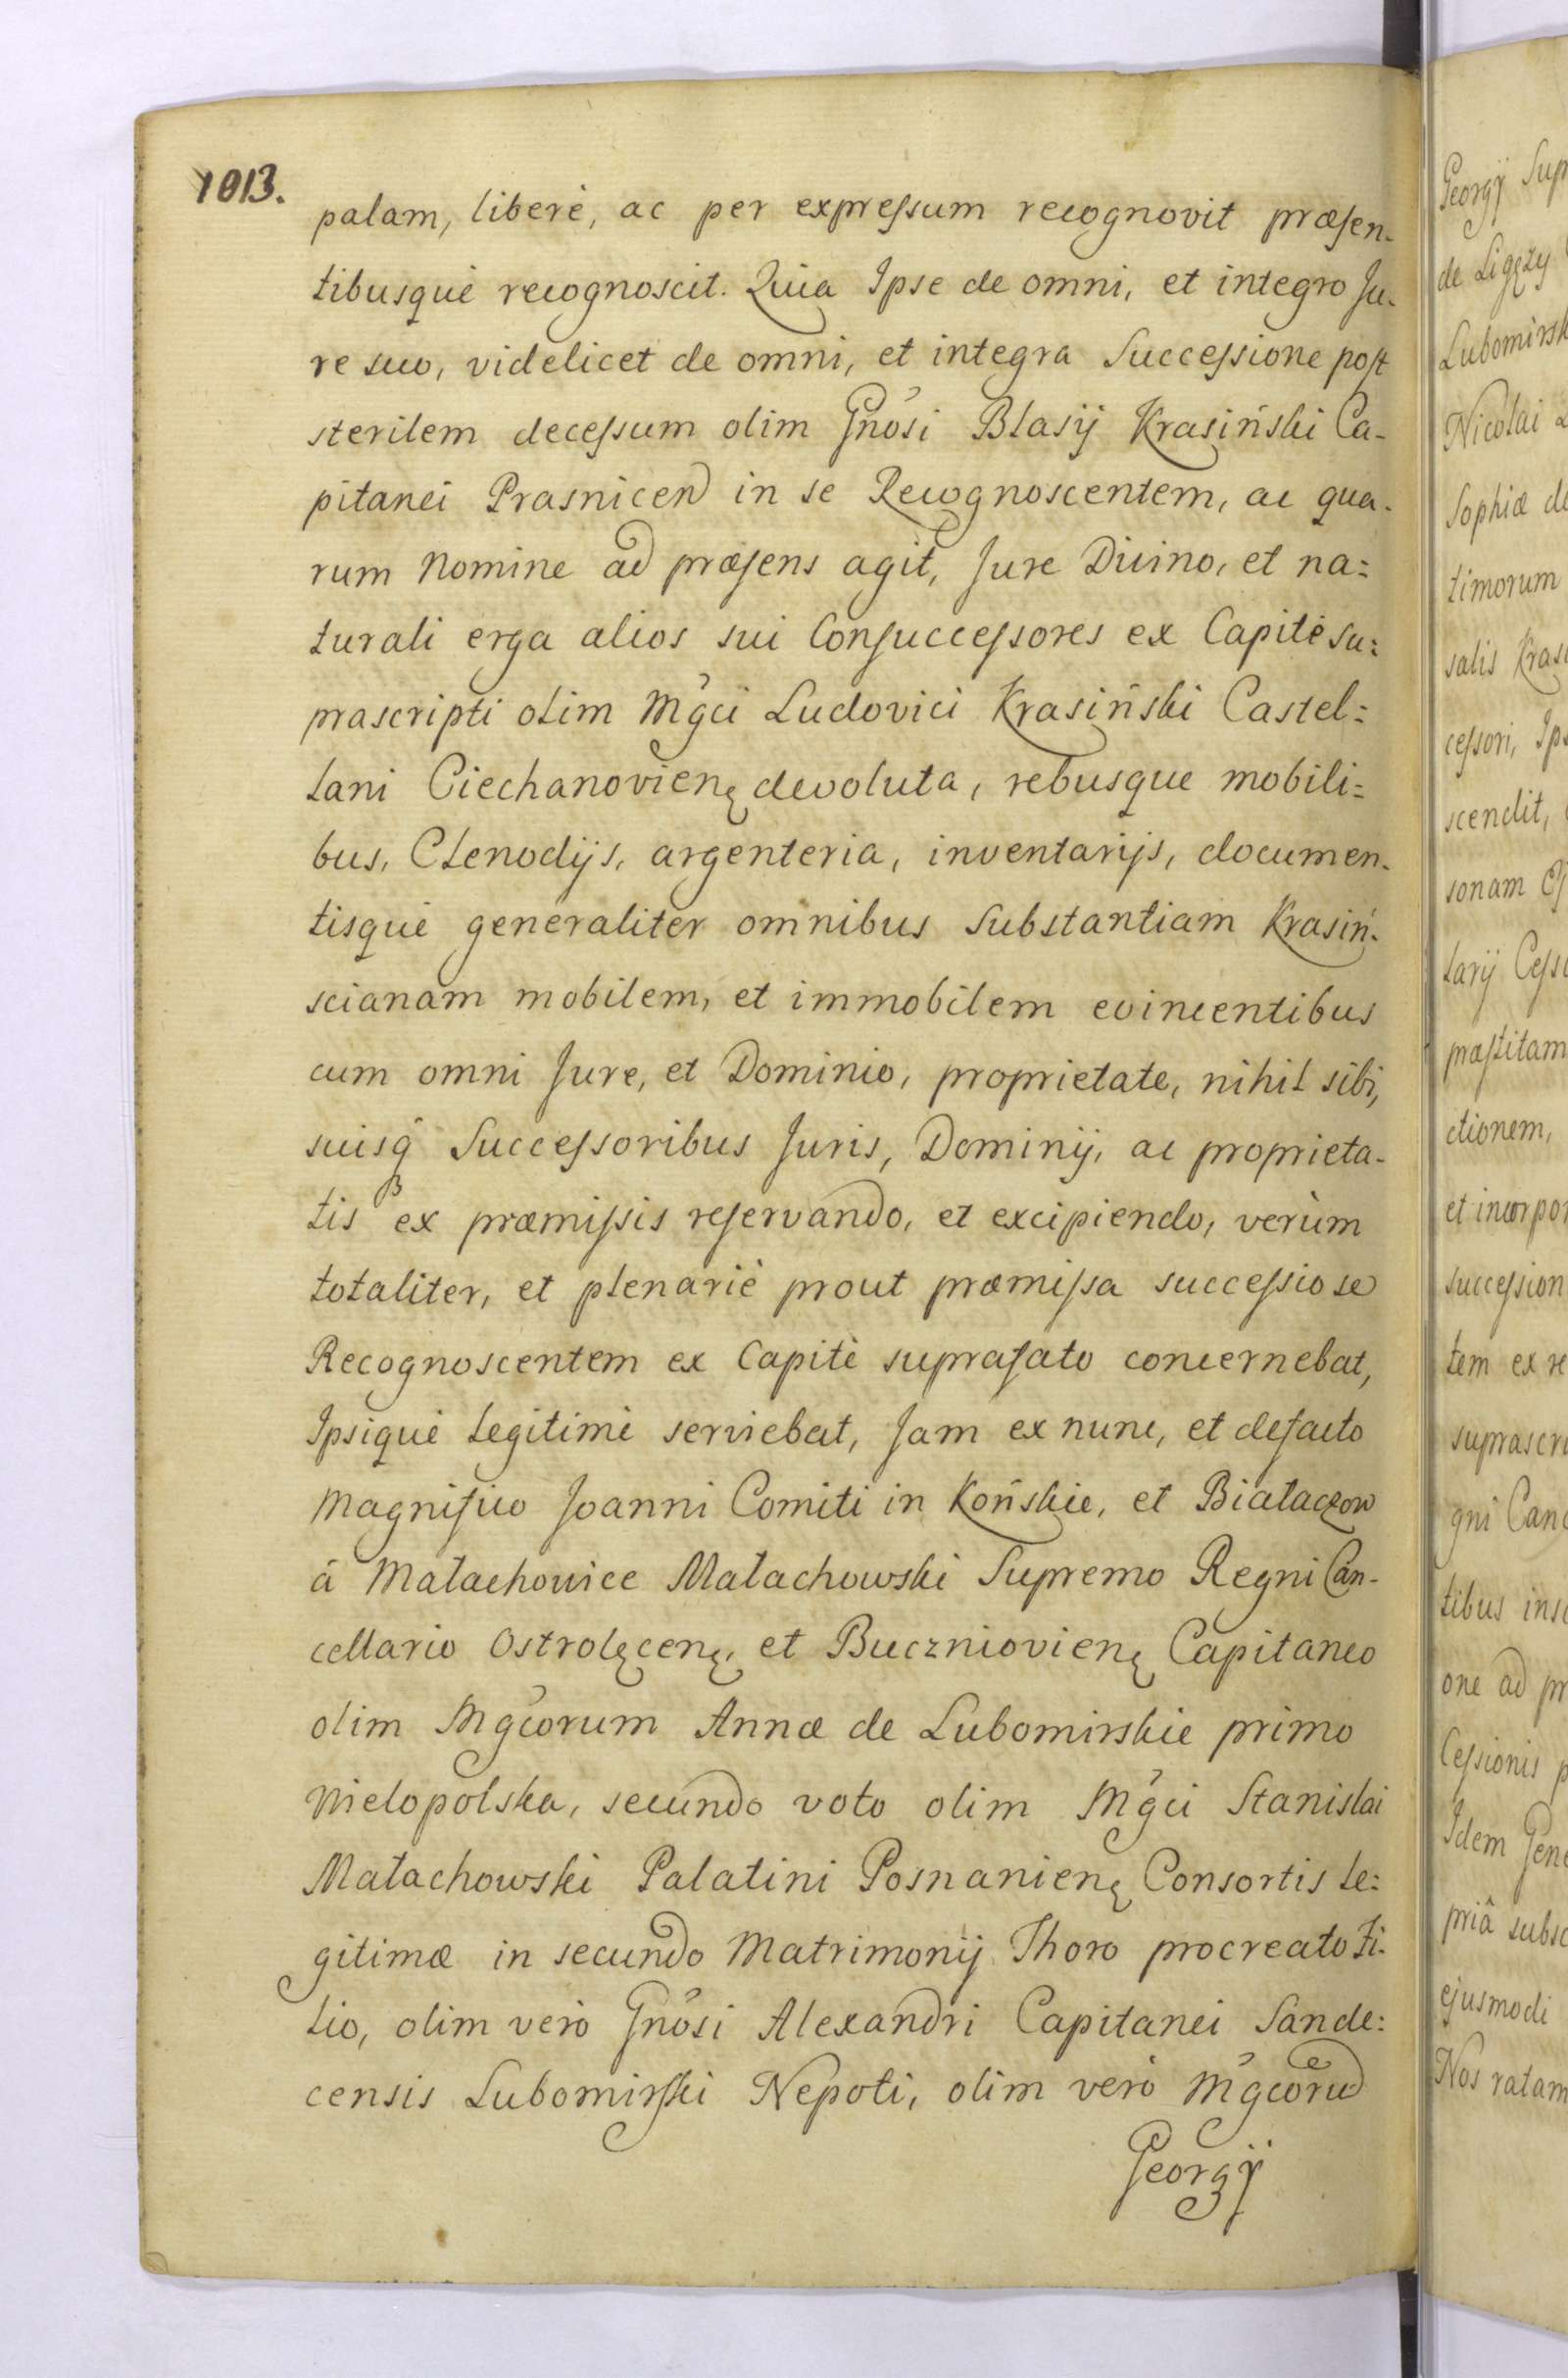 1013.
palam, liberè, ac per expressum recognovit præsen-
tibusquè recognoscit. Quia Ipse de omni, et integro Ju-
re suo, videlicet de omni, et integra Successione post
sterilem decessum olim Gnosi Blasij Krasiński Ca-
pitanei Prasnicen in se Recognoscentem, ac qua-
rum Nomine ad præsens agit, Jure Divino, et na=
turali erga alios sui Consuccessores ex Capite su=
prascripti olim Mgci Ludovici Krasiński Castel=
lani Ciechanovien devoluta, rebusque mobili=
bus, Clenodijs, argenteria, inventarijs, documen-
tisquè generaliter omnibus Substantiam Krasiń-
scianam mobilem, et immobilem evincentibus
cum omni Jure, et Dominio, proprietate, nihil sibi,
suisq̃ Successoribus Juris, Dominij, ac proprieta-
tis ex præmissis reservando, et excipiendo, verùm
totaliter, et plenariè prout præmissa successio se
Recognoscentem ex Capitè suprafato concernebat,
Ipsiquè Legitimè serviebat, Jam ex nunc, et defacto
Magnifico Joanni Comiti in Końskie, et Białaczow
â Małachowice Małachowski Supremo Regni Can-
cellario Ostrolęcen, et Buczniovien Capitaneo
olim Mgcorum Annæ de Lubomirskie primo
Wielopolska, secundo voto olim Mgci Stanislai
Małachowski Palatini Posnanien Consortis Le=
gitimæ in secundo Matrimonij Thoro procreato Fi-
lio, olim verò Gnosi Alexandri Capitanei Sande=
censis Lubomirski Nepoti, olim verò Mgcoru
Georgij
Georgij Sup
de Ligęzy
Lubomirsk
Nicolai
Sophiæ de
timorum
salis Kras
cessori, Ips
scendit,
sonam
larij Cess
præstitam
ctionem,
et incorpor
succession
tem ex re
suprascri
gni Canc
tibus ins
one ad pr
Cessionis p
Idem Gene
priâ subsc
ejusmodi
Nos ratam